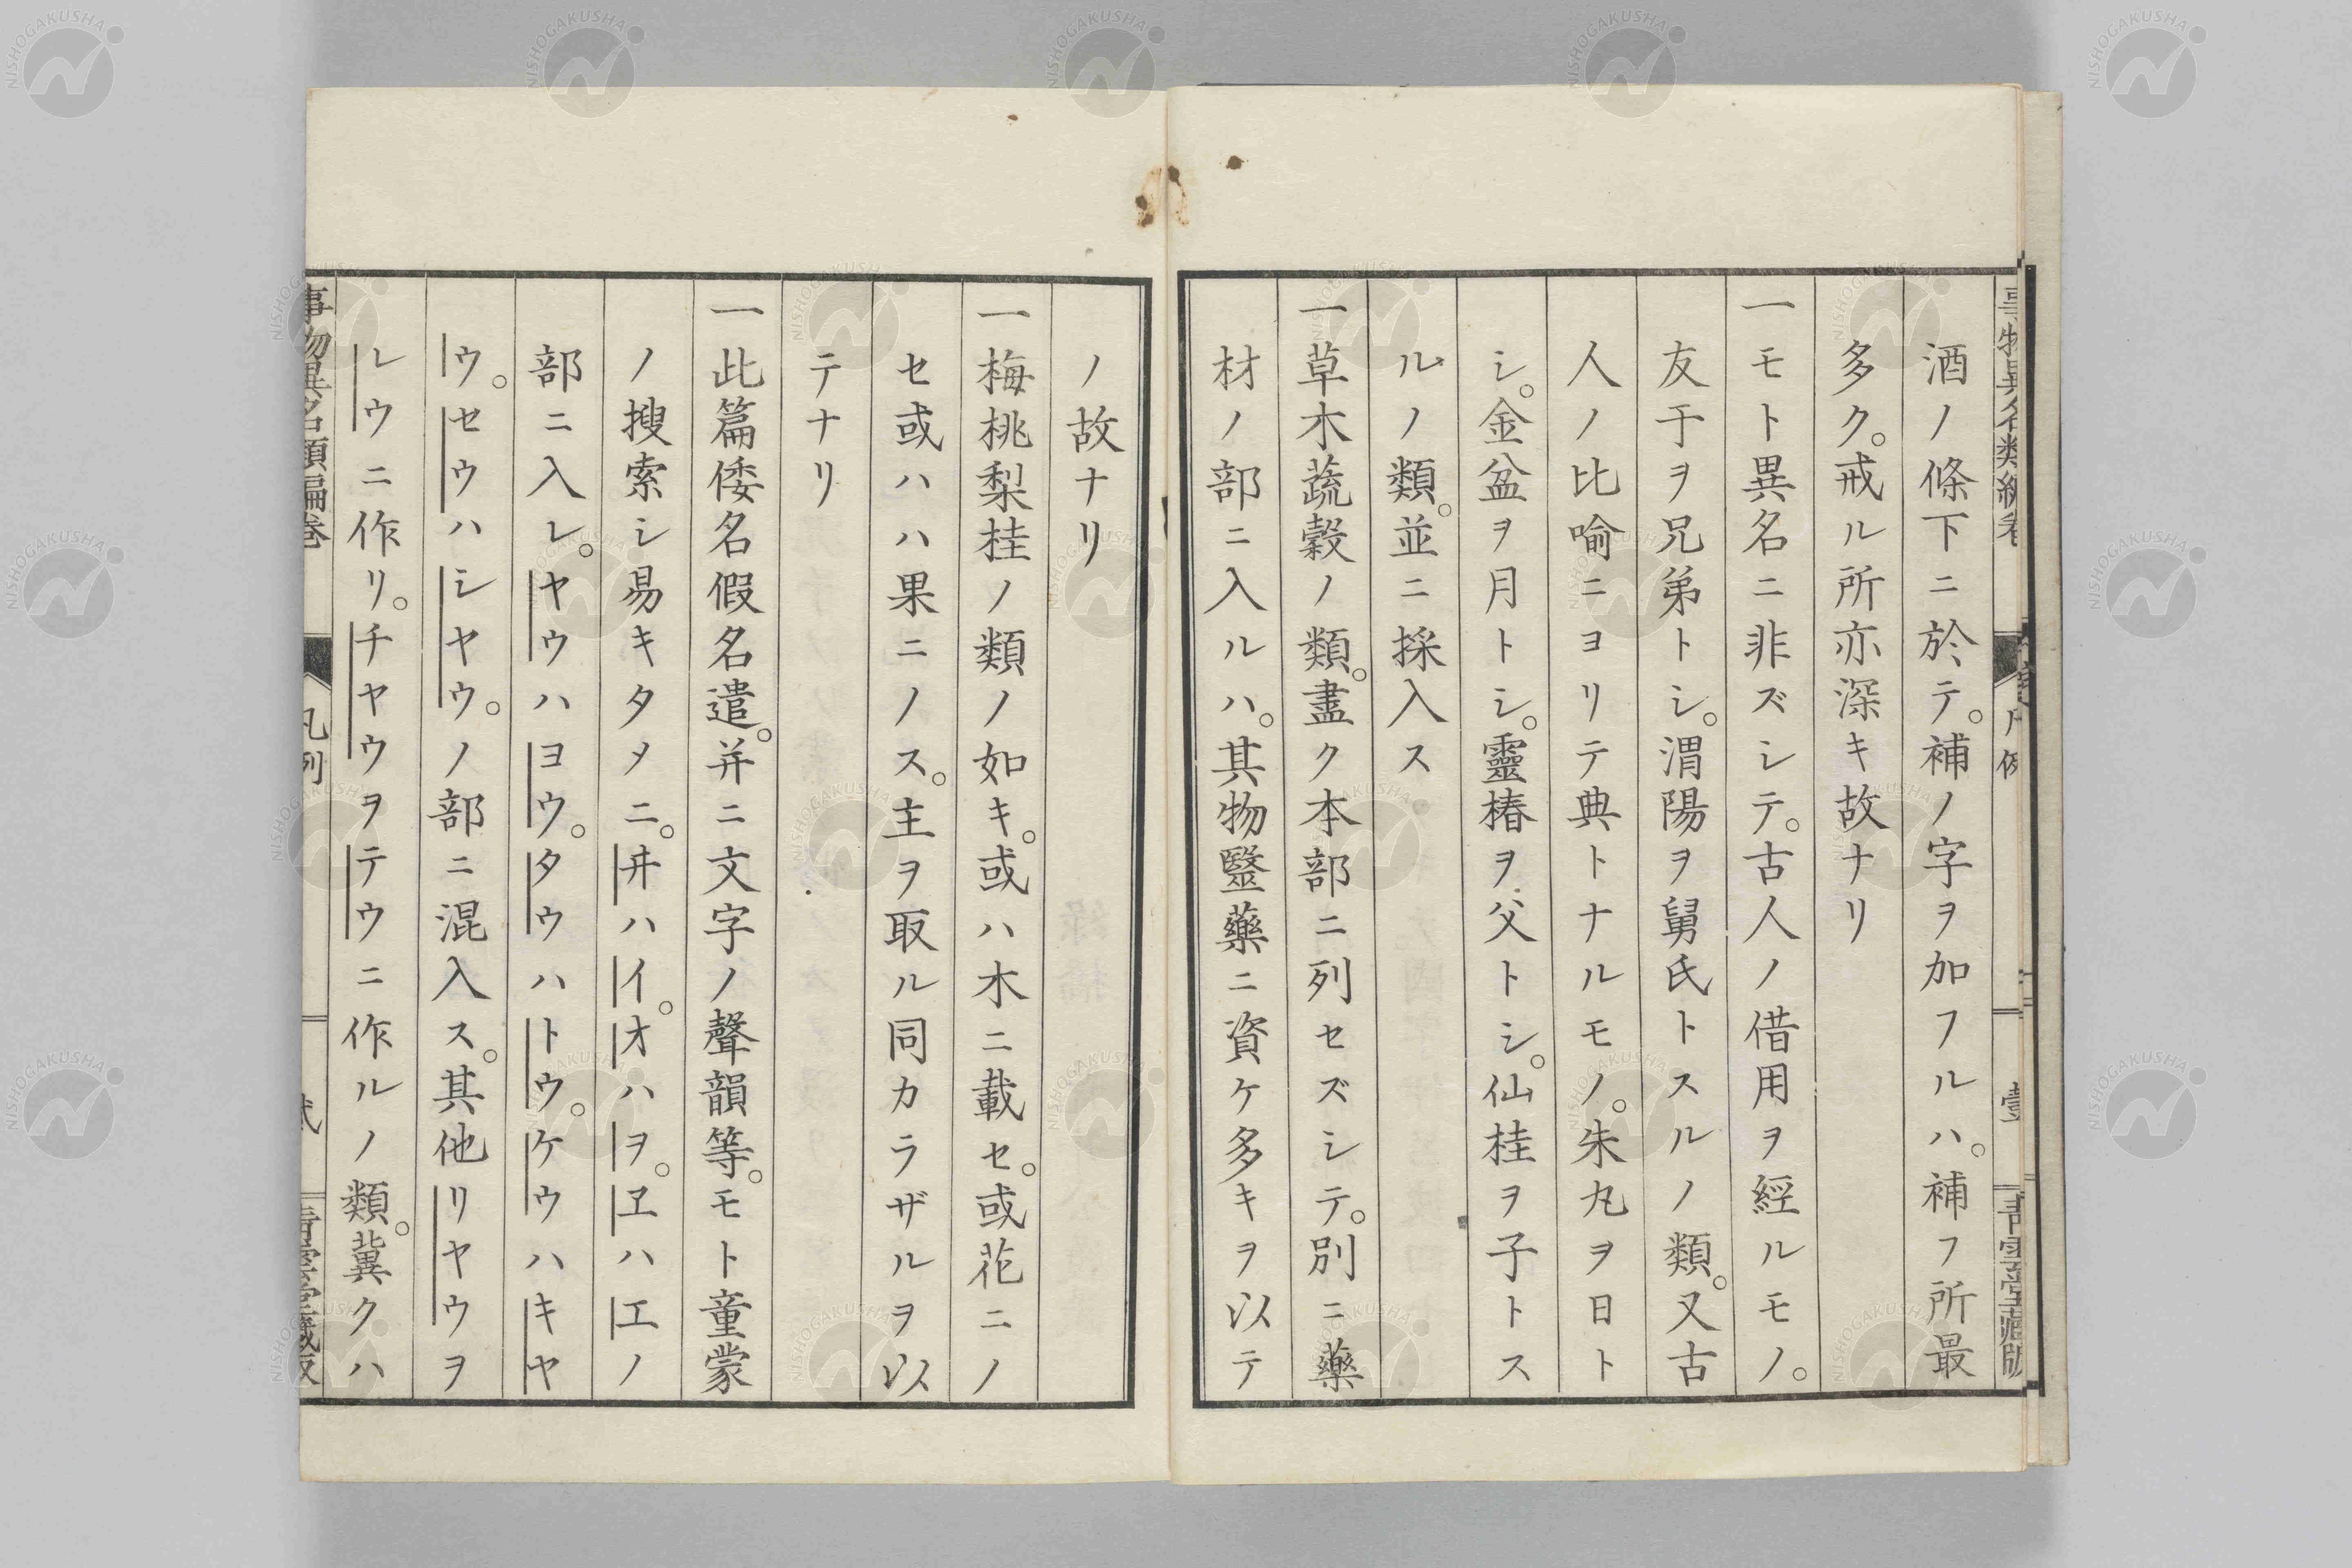 事物異名類編卷 凡例 壹 青雲堂藏版
酒ノ條下ニ於テ。補ノ字ヲ加フルハ。補フ所最
多ク。戒ル所亦深キ故ナリ
一モト異名ニ非ズシテ。古人ノ借用ヲ經ルモノ。
友于ヲ兄弟トシ。渭陽ヲ舅氏トスルノ類。又古
人ノ比喻ニヨリテ典トナルモノ。朱丸ヲ日ト
シ。金盆ヲ月トシ。靈椿ヲ父トシ。仙桂ヲ子トス
ルノ類。並ニ採入ス
一草木蔬穀ノ類。盡ク本部ニ列セズシテ。別ニ藥
材ノ部ニ入ルハ。其物毉藥ニ資ケ多キヲ以テ
ノ故ナリ
一梅桃梨桂ノ類ノ如キ。或ハ木ニ載セ。或花ニノ
セ或ハハ果ニノス。主ヲ取ル同カラザルヲ以
テナリ
一此篇倭名假名遣。并ニ文字ノ聲韻等。モト童蒙
ノ搜索シ易キタメニ。ヰハイ。オハヲ。ヱハエノ
部ニ入レ。ヤウハヨウ。タウハトウ。ケウハキヤ
ウ。セウハシヤウ。ノ部ニ混入ス。其他リヤウヲ
レウニ作リ。チヤウヲテウニ作ルノ類。冀クハ
事物異名類編卷 凡例 貳 青雲堂藏版
NISHOGAKUSHA